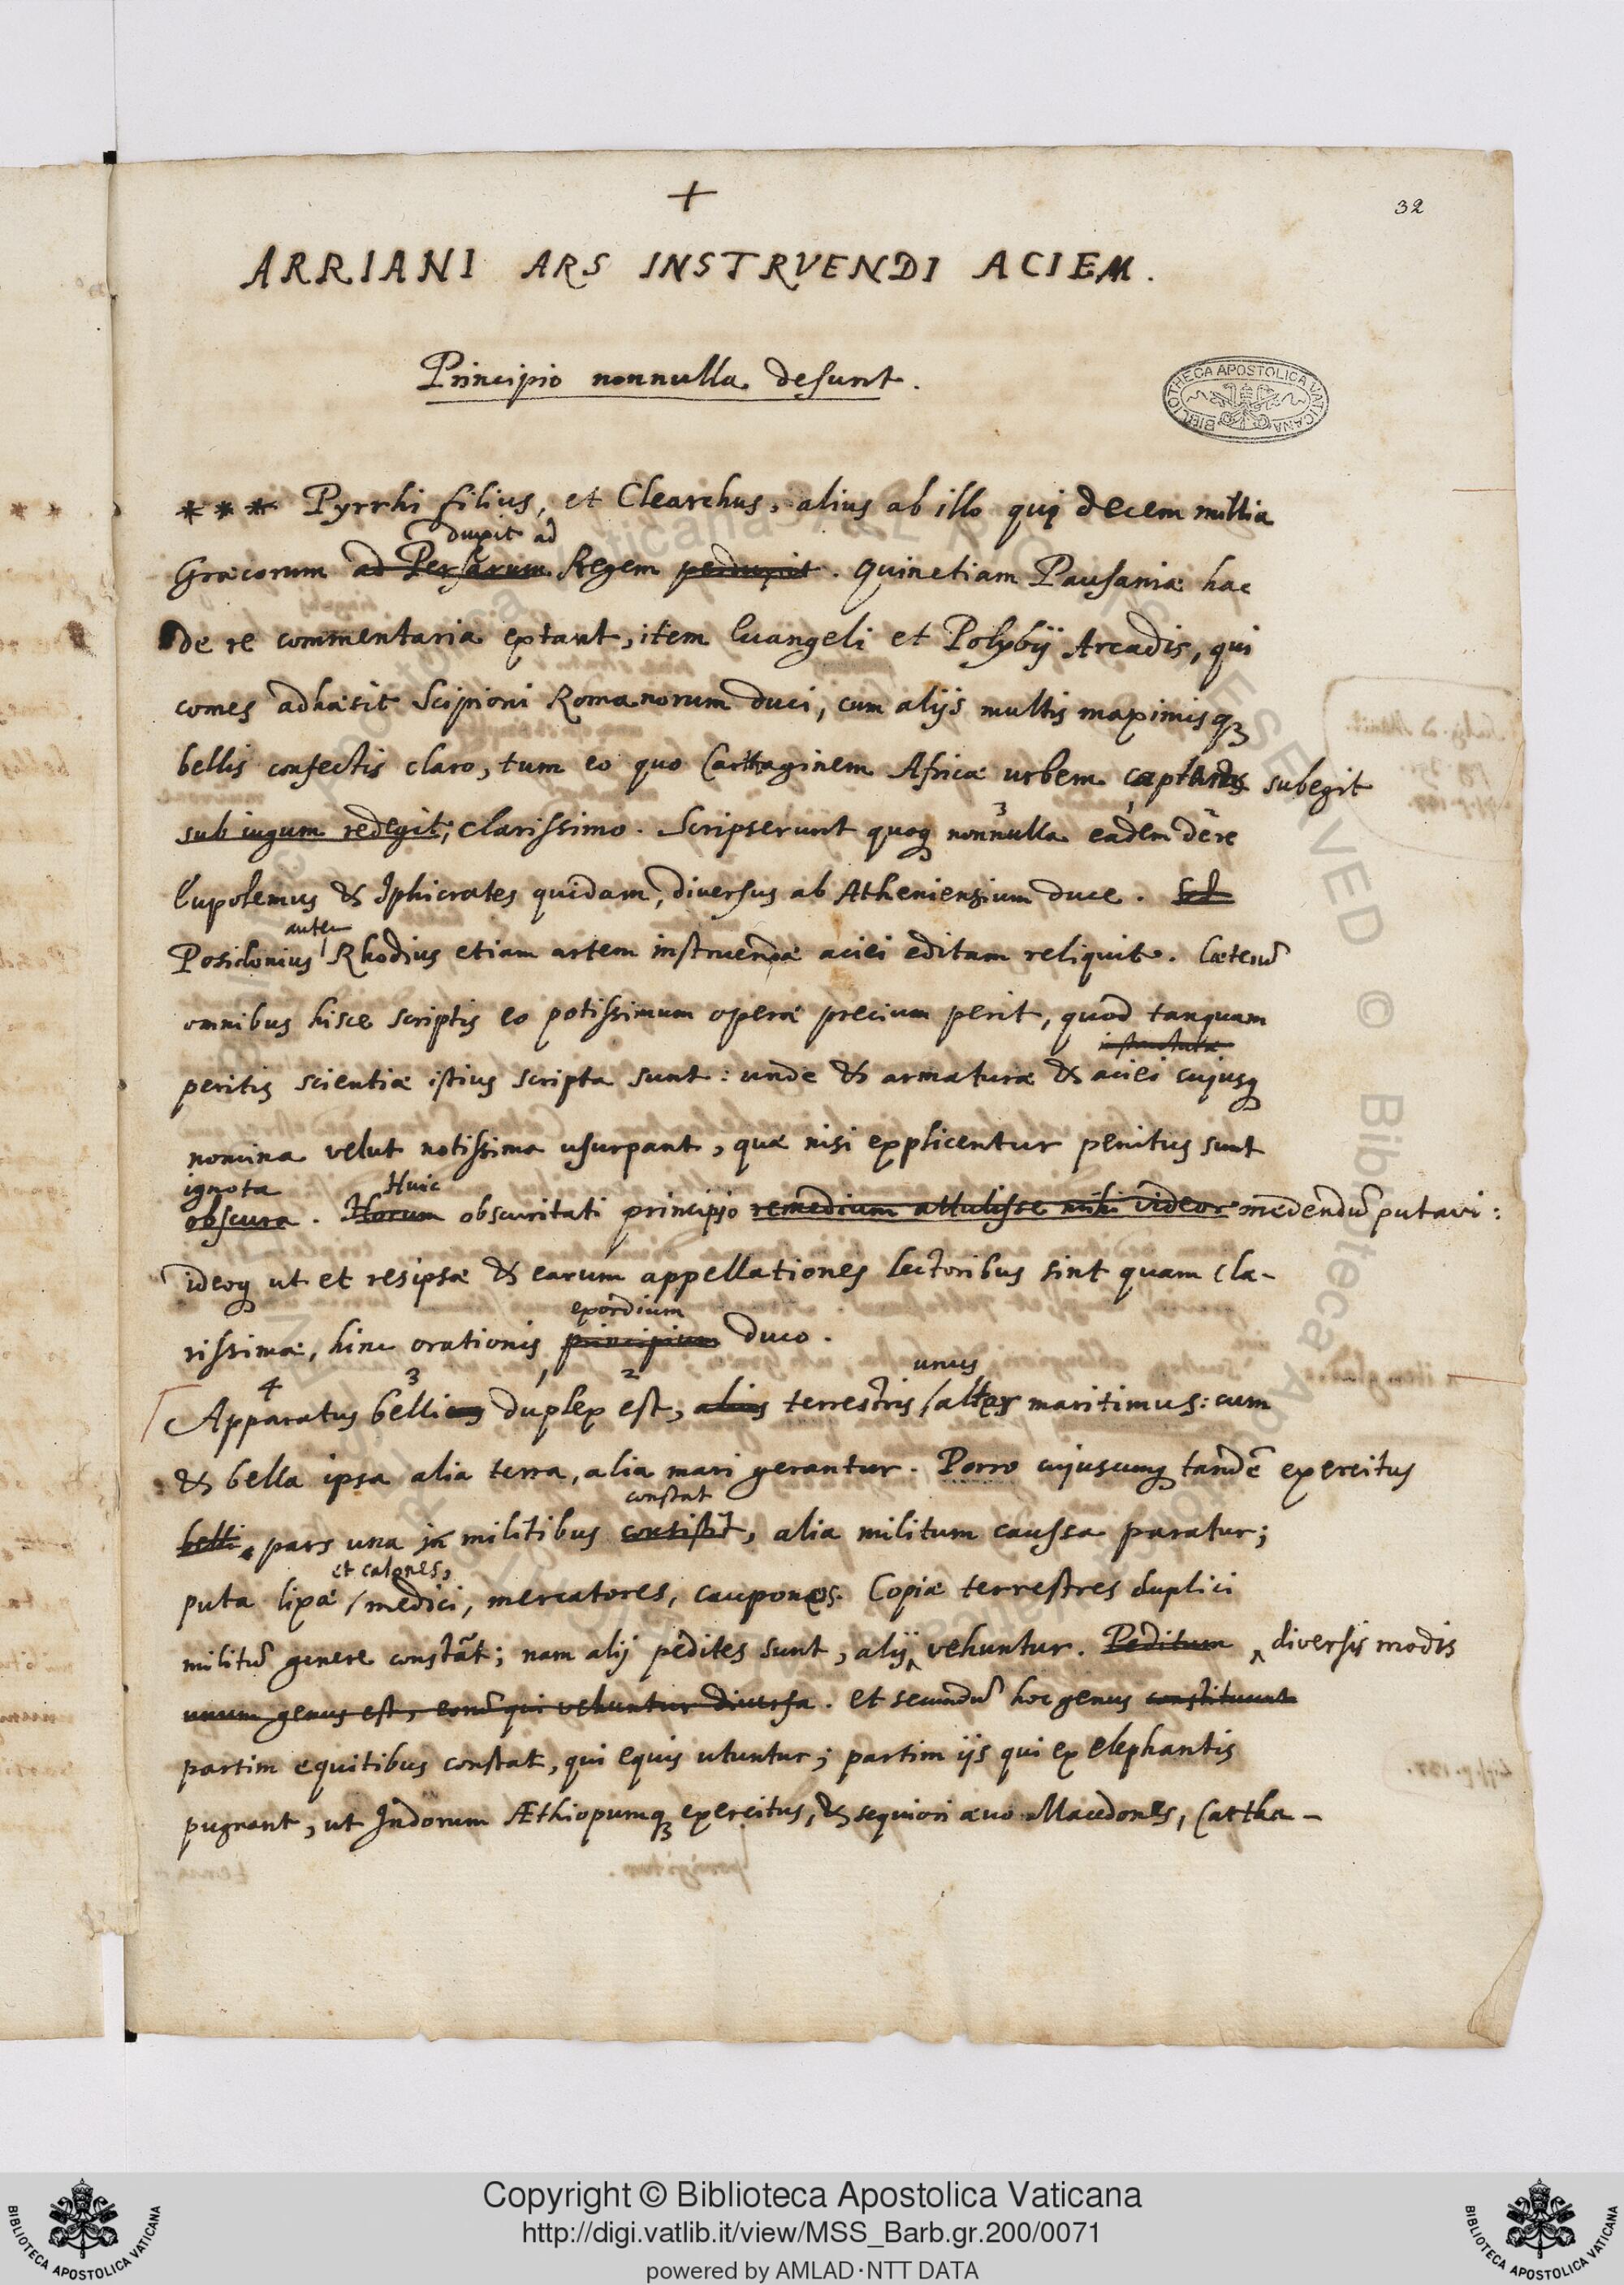 +
32
ARRIANI ARS INSTRVENDI ACIEM.
Principio nonnulla desunt.
BIBLIOTHECA APOSTOLICA VATICANA
*** Pyrrhi filius, et Clearchus, alius ab illo qui decem millia
duxit ad
Græcorum ad Persarum Regem perduxit. quinetiam Pausaniæ hac
de re commentaria extant, item Euangeli et Polybij Arcadis, qui
comes adhæsit Scipioni Romanorum duci, cum alijs multis maximisq3
bellis confectis claro, tum eo quo Carthaginem Africæ urbem subegit
sub iugum redegit; clarissimo. Scripserunt quoq nonnulla eadem de re
Eupolemus & Iphicrates quidam, diversus ab Atheniensium duce. Sed
autem
Posidonius Rhodius etiam artem instruendæ aciei editam reliquit. Cæterũ
omnibus hisce scriptis eo potissimum operæ precium perit, quod tanquam
peritis scientiæ istius scripta sunt: unde & armaturæ & aciei cujusq
nomina velut notissima usurpant, quæ nisi explicentur penitus sunt
ignota Huic
obscura. Horum obscuritati principio remedium attulisse mihi videor medendũ putavi:
ideoq ut et res ipsæ & earum appellationes lectoribus sint quam cla-
exordium
rissimæ, hinc orationis principium duco.
4 3 1 2 unus
Apparatus bellicus duplex est, alius terrestris / alter maritimus: cum
& bella ipsa alia terra, alia mari gerantur. Porro cujuscunq tandẽ exercitus
constat
belli pars una in militibus consistit, alia militum caussa paratur;
et calones,
puta lixæ / medici, mercatores, caupones. Copiæ terrestres duplici
militũ genere constãt; nam alij pedites sunt, alij vehuntur. Peditum diversis modis
unum genus est, eorũ qui vehuntur diversa. et secundũ hoc genus constituunt
partim equitibus constat, qui equis utuntur; partim ijs qui ex elephantis
pugnant, ut Indorum Æthiopumq3 exercitus, & sequiori ævo Macedones, Cartha-
Copyright © Biblioteca Apostolica Vaticana
http://digi.vatlib.it/view/MSS_Barb.gr.200/0071
powered by AMLAD·NTT DATA
BIBLIOTECA APOSTOLICA VATICANA
BIBLIOTECA APOSTOLICA VATICANA